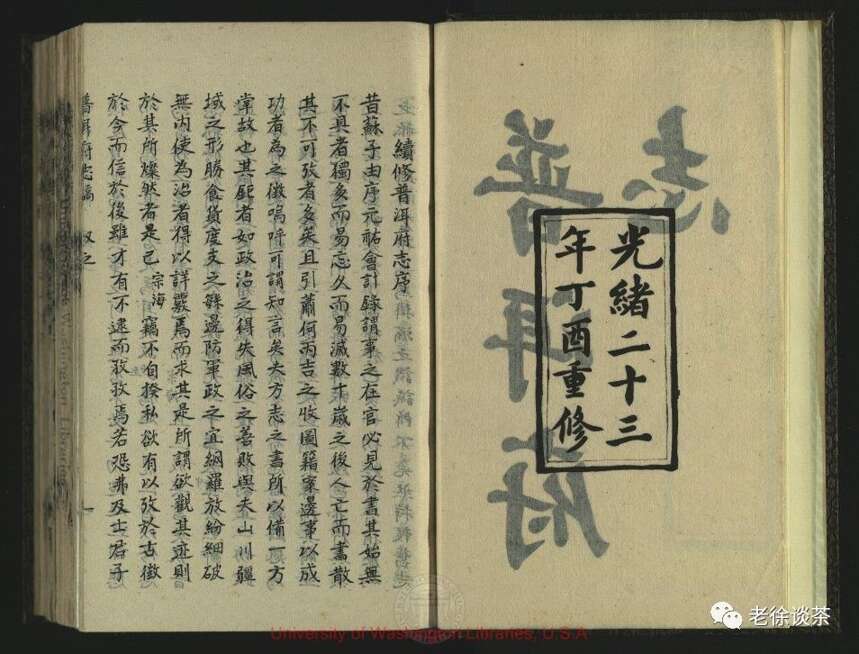 光緒二十三
年丁酉重修
續修普洱府志序
昔蘇子由序元祐會計錄謂事之在官必見於書其始無
不具者獨多而易忘久而易滅數十歲之後人亡而書散
其不可攷者多矣且引蕭何丙吉之收圖籍案邊事以成
功者為之徵嗚呼可謂知言矣夫方志之書所以備一方
掌故也其鉅者如政治之得失風俗之善敗與夫山川疆
域之形勝食貨度支之緐邊防軍政之宜網羅放紛細破
無內使為治者得以詳覈焉而求其是所謂欲觀其迹則
於其所燦然者是已宗海竊不自揆私欲有以攷於古徵
於今而信於後雖才有不逮而孜孜焉若恐弗及士君子
普洱府志稿
一
University of Washington Libraries, U S A
老徐谈茶